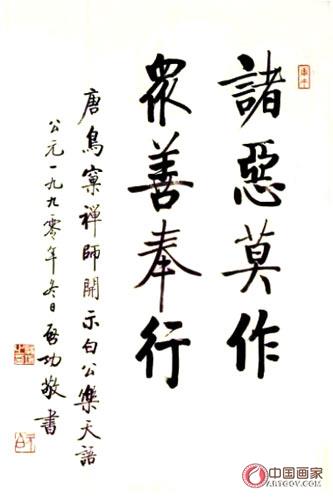 諸惡莫作
眾善奉行
唐鳥窠禪師開示白公樂天語
公元一九九零年冬日啓功敬書
中国画家
ARTGOV.COM